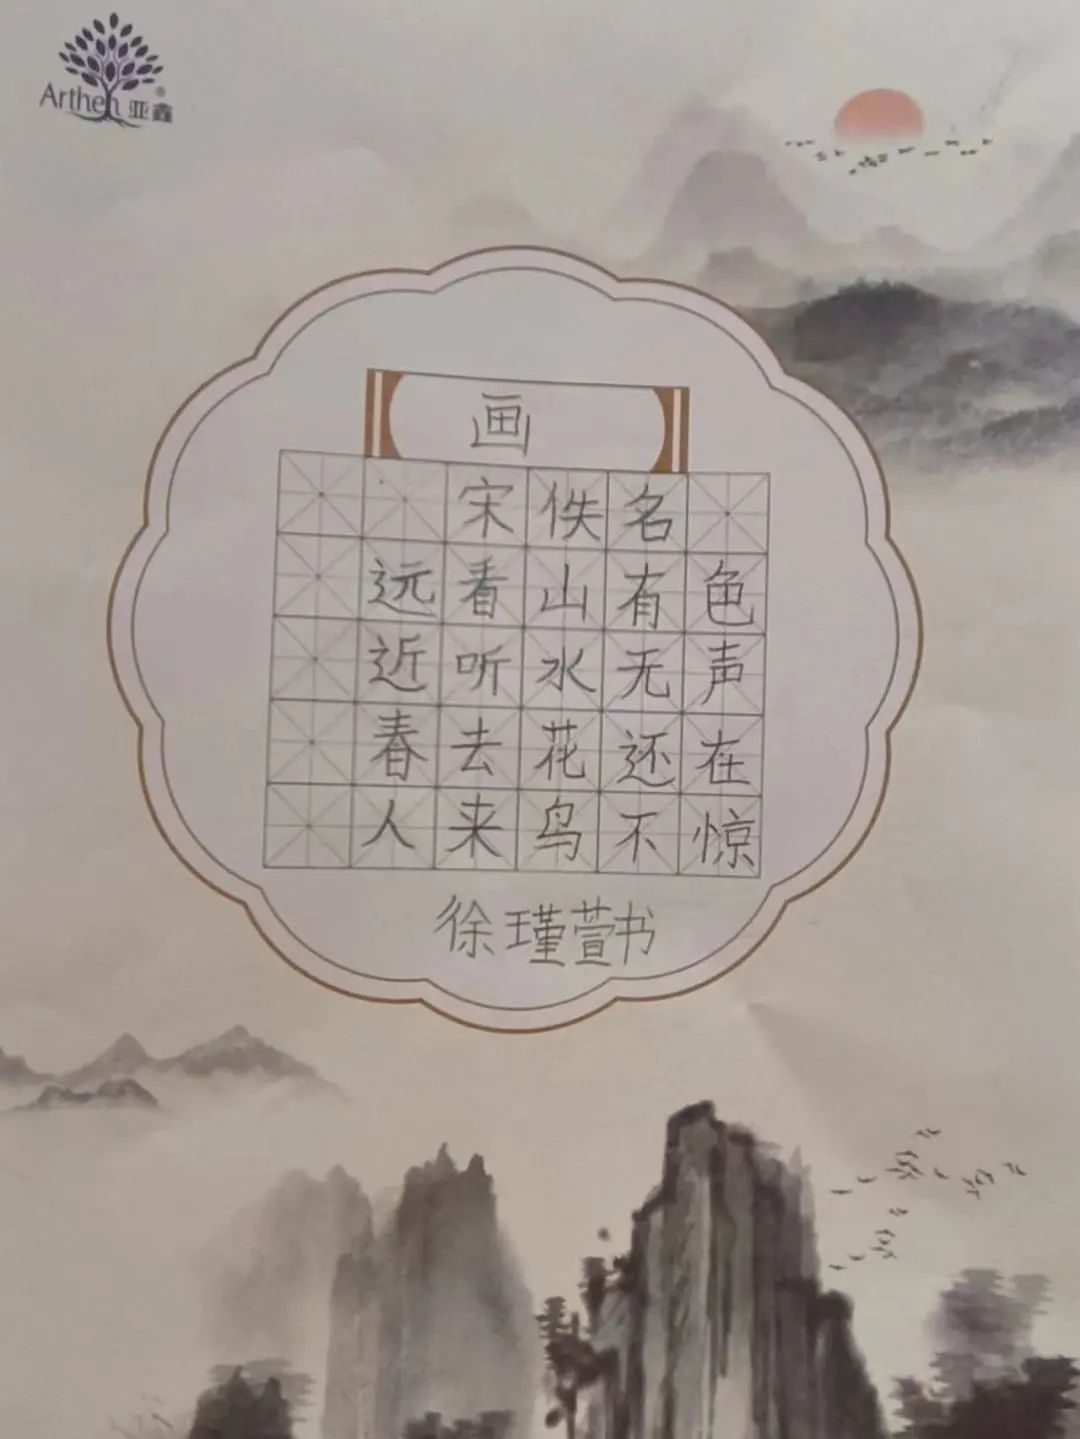 Arthen 亚鑫®
画
宋佚名
远看山有色
近听水无声
春去花还在
人来鸟不惊
徐瑾萱书